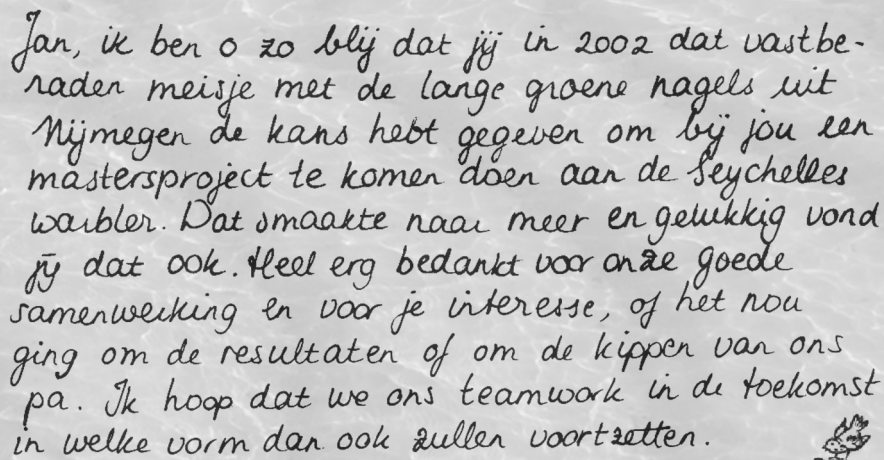 Jan, ik ben o zo blij dat jij in 2002 dat vastbe-
raden meisje met de lange groene nagels uit
Nijmegen de kans hebt gegeven om bij jou een
mastersproject te komen doen aan de Seychelles
warbler. Dat smaakte naar meer en gelukkig vond
jij dat ook. Heel erg bedankt voor onze goede
samenwerking en voor je interesse, of het nou
ging om de resultaten of om de kippen van ons
pa. Ik hoop dat we ons teamwork in de toekomst
in welke vorm dan ook zullen voortzetten.